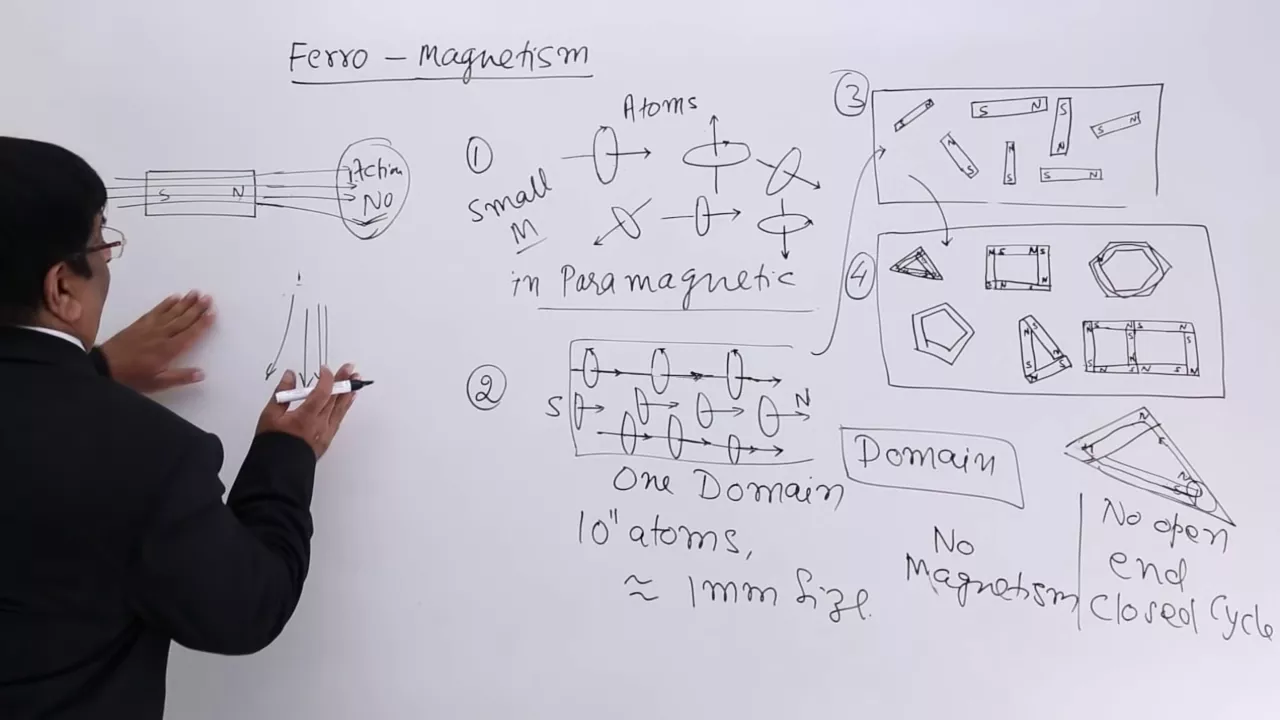 Ferro - Magnetism
S N
Action
No
①
Atoms
Small
M
in Paramagnetic
②
S N
One Domain
10" atoms,
≈ 1mm Size.
③
S N
S
N
④
Domain
No
Magnetism
No open
end
Closed Cycle